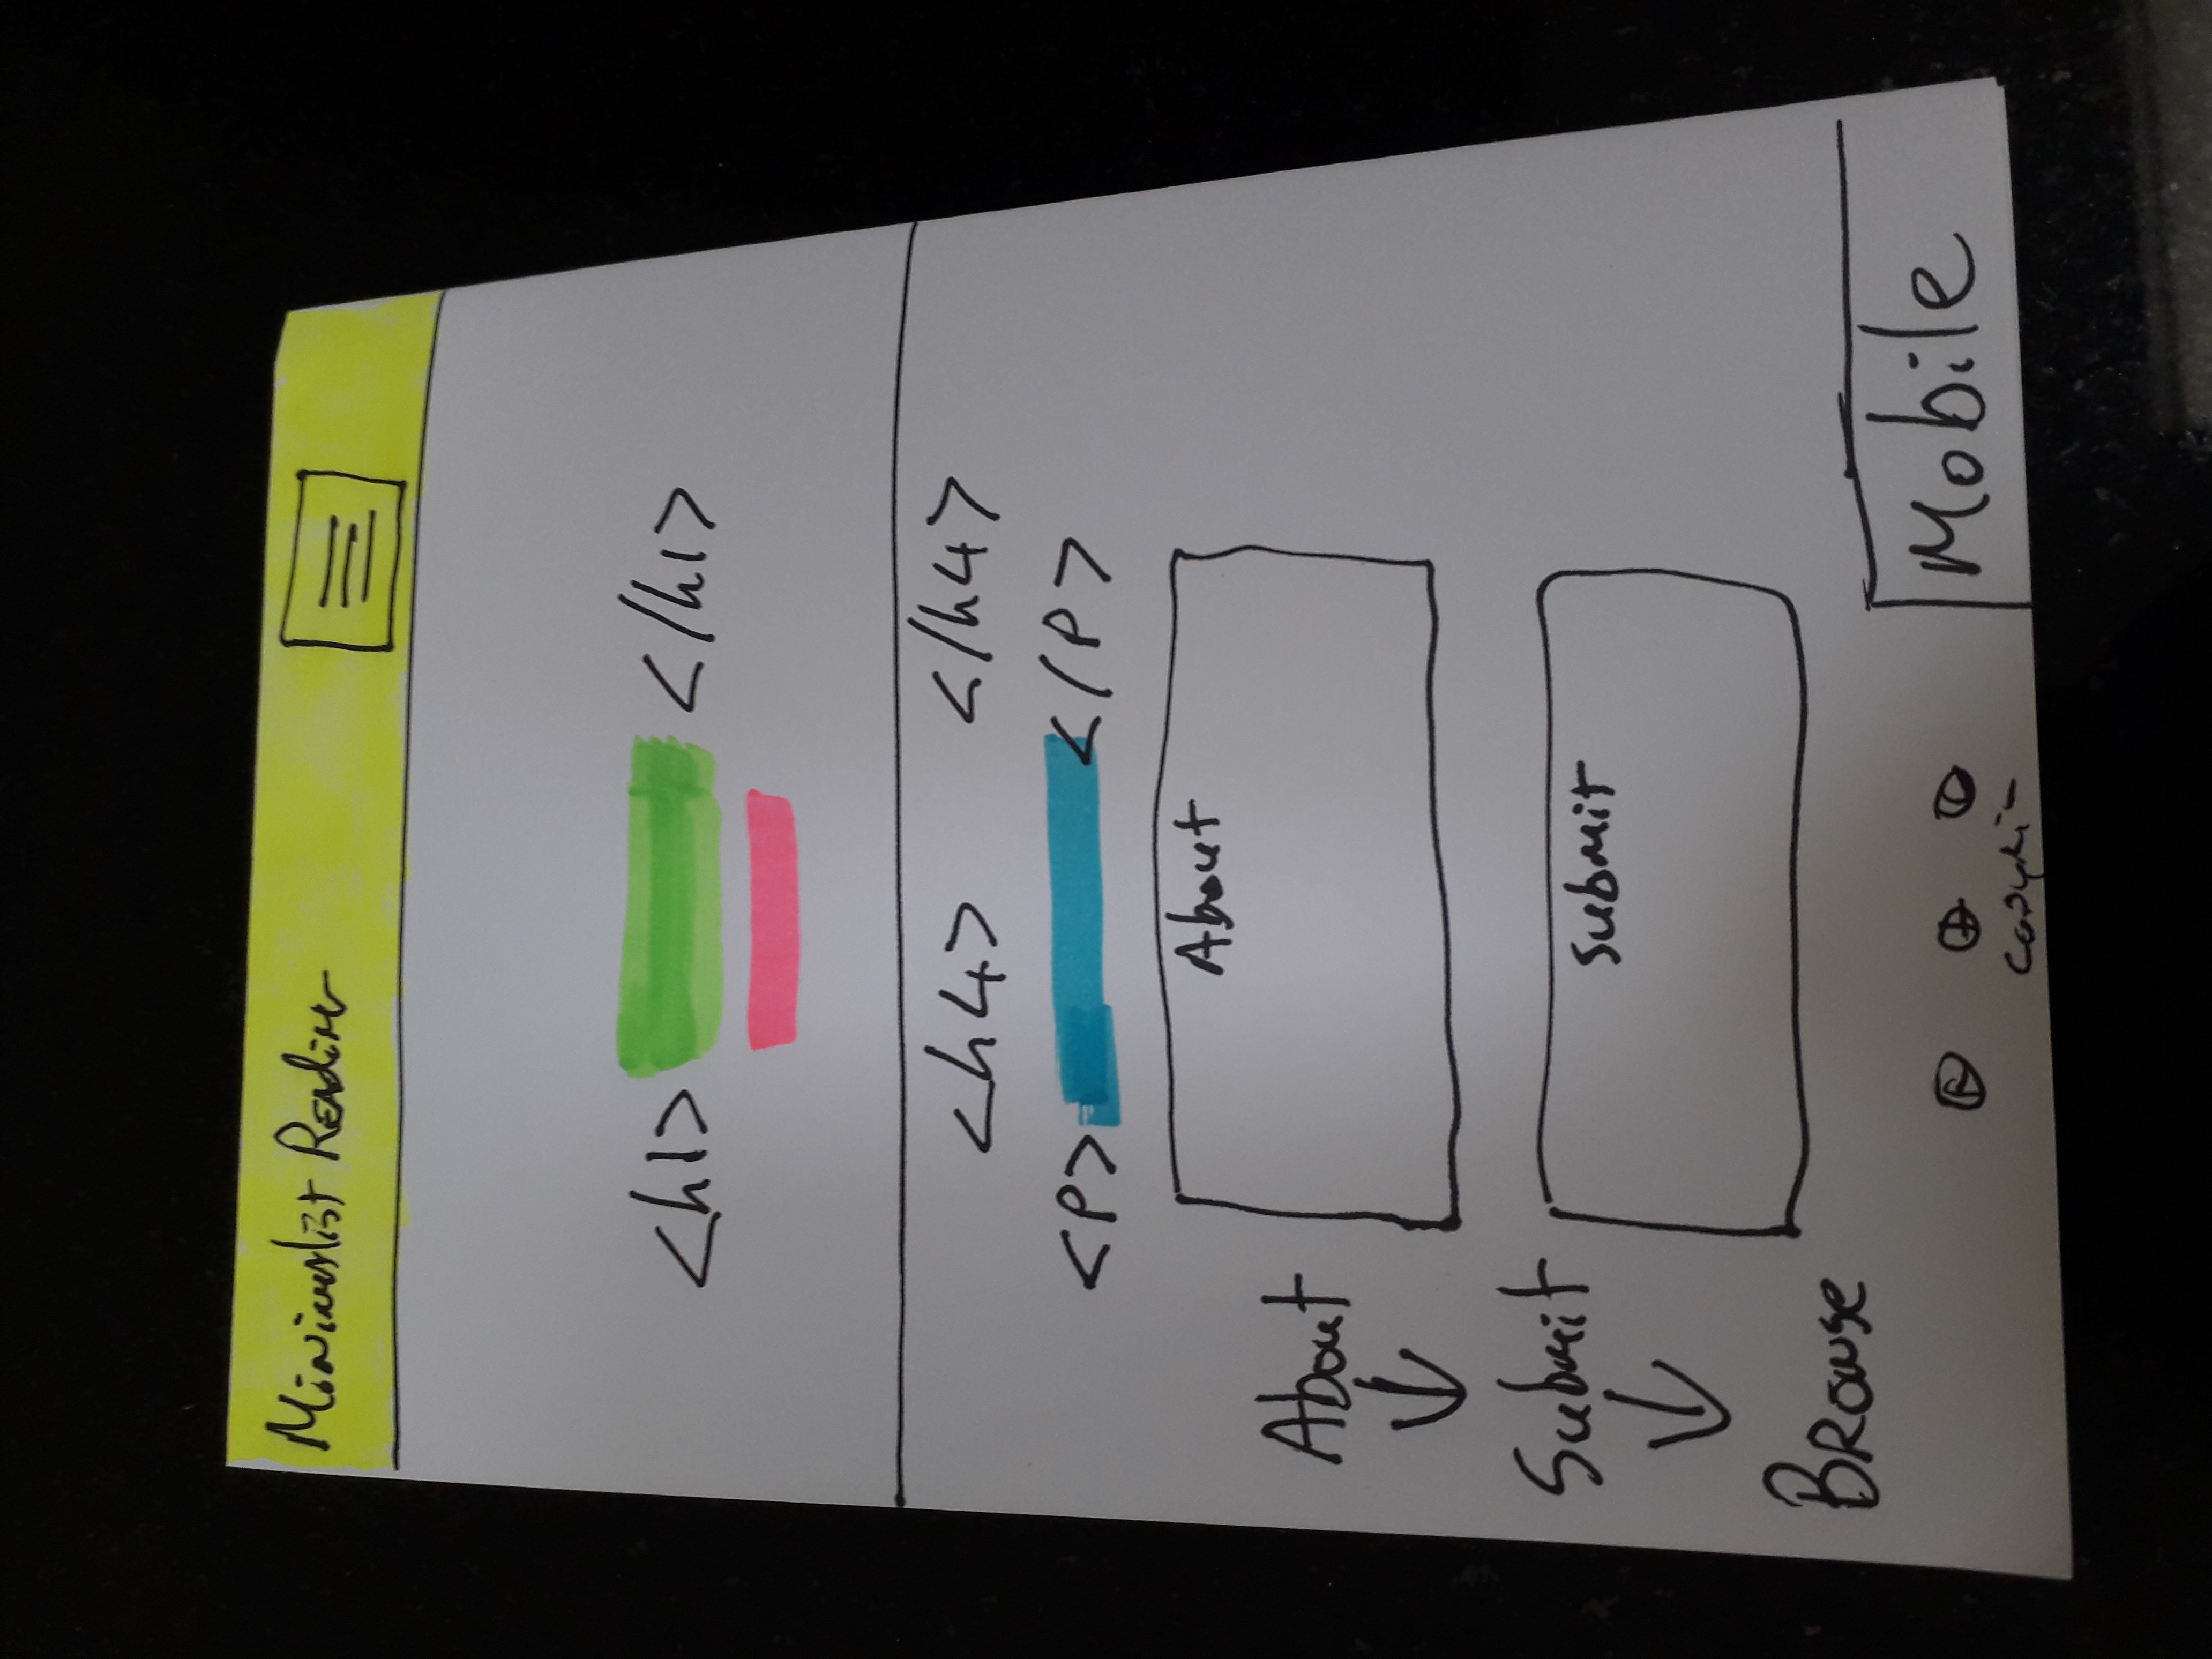 Minimalist Reading
<h1> </h1>
<h4> </h4>
<p> </p>
About
About
Submit
Submit
Browse
Mobile